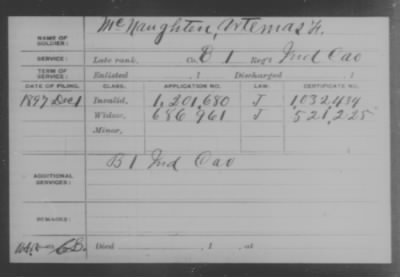 NAME OF SOLDIER: McNaughton, Artemas H.
SERVICE: Late rank, Co. D 1 Reg't Ind Cav
TERM OF SERVICE: Enlisted , 1 Discharged , 1
DATE OF FILING. CLASS. APPLICATION NO. LAW. CERTIFICATE NO.
1897 Dec 1 Invalid, 1,201,680 J 1,032,434
Widow, 686,961 J 521,225
Minor,
ADDITIONAL SERVICES: B 1 Ind Cav
REMARKS:
Died , 1 , at